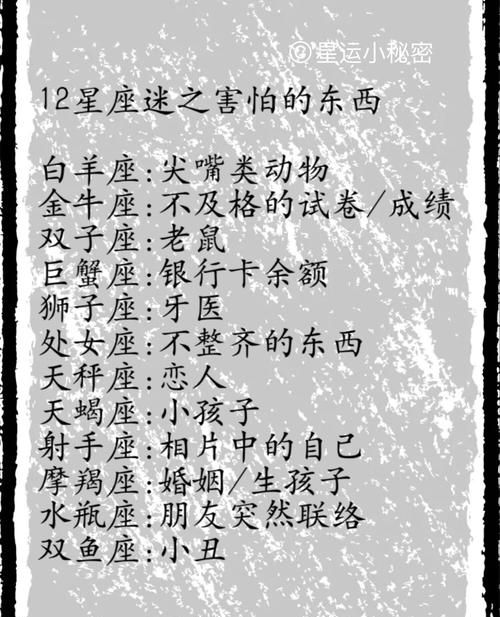 @星运小秘密
12星座迷之害怕的东西
白羊座:尖嘴类动物
金牛座:不及格的试卷/成绩
双子座:老鼠
巨蟹座:银行卡余额
狮子座:牙医
处女座:不整齐的东西
天秤座:恋人
天蝎座:小孩子
射手座:相片中的自己
摩羯座:婚姻/生孩子
水瓶座:朋友突然联络
双鱼座:小丑